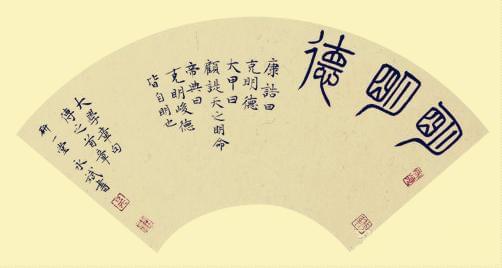 明明德
康誥曰
克明德
大甲曰
顧諟天之明命
帝典曰
克明峻德
皆自明也
大學章句
傳之首章
研一堂永斌書